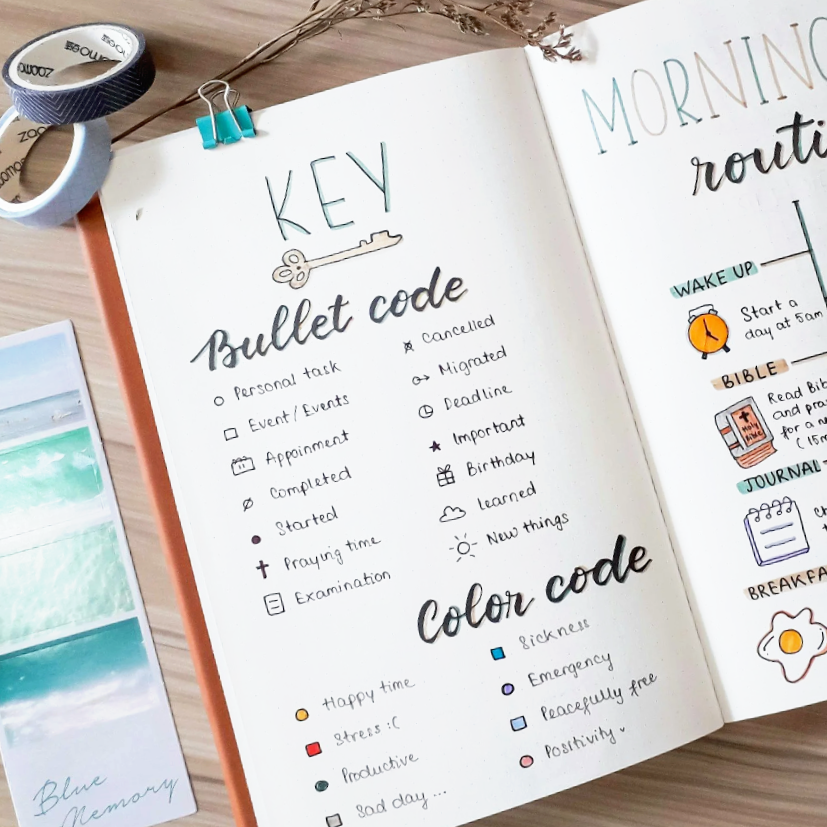 zoomoes
KEY
Bullet code
Personal task
Event/Events
Appoinment
Completed
Started
Praying time
Examination
Cancelled
Migrated
Deadline
Important
Birthday
learned
New things
Color code
Happy time
Stress :(
Productive
Sad day ...
Sickness
Emergency
Peacefully free
Positivity
MORNING
routi
WAKE UP
Start a
day at 5am
BIBLE
Holy
Bible
Read Bib
and pra
for a
(15m
JOURNAL
BREAKFA
Blue
Memory